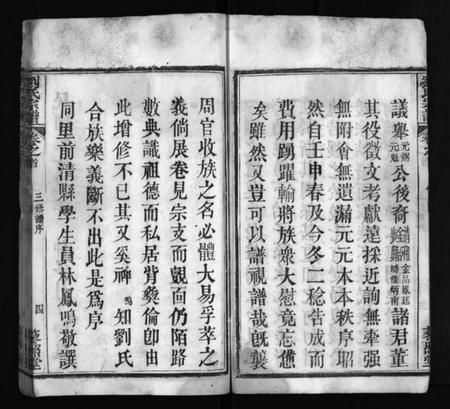 議舉元弼元魁公後裔諸君董
其役徵文考獻遠採近詢無牽强
無附會無遺漏元元本本秩序昭
然自壬申春及今冬二稔告成而
費用踴躍輸將族衆大慰竟忘憊
矣雖然又豈可以譜視譜哉旣襲
周官收族之名必體大易孚萃之
義倘展卷見宗支而覿面仍陌路
數典識祖德而私居背彜倫卽由
此增修不已其又奚裨鳴知劉氏
合族樂義斷不出此是爲序
同里前清縣學生員林鳳鳴敬撰
劉氏宗譜
卷之首
三修譜序
四